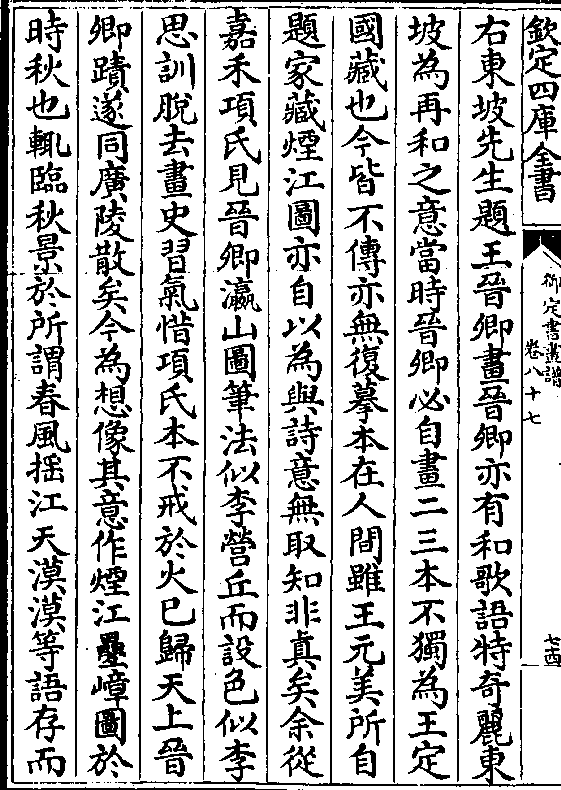 欽定四庫全書
御定書畫譜
卷八十七
七十四
右東坡先生題王晉卿畫晉卿亦有和歌語特奇麗東
坡為再和之意當時晉卿必自畫二三本不獨為王定
國藏也今皆不傳亦無復摹本在人間雖王元美所自
題家藏煙江圖亦自以為與詩意無取知非真矣余從
嘉禾項氏見晉卿瀛山圖筆法似李營丘而設色似李
思訓脫去畫史習氣惜項氏本不戒於火已歸天上晉
卿蹟遂同廣陵散矣今為想像其意作煙江疊嶂圖於
時秋也輒臨秋景於所謂春風摇江天漠漠等語存而